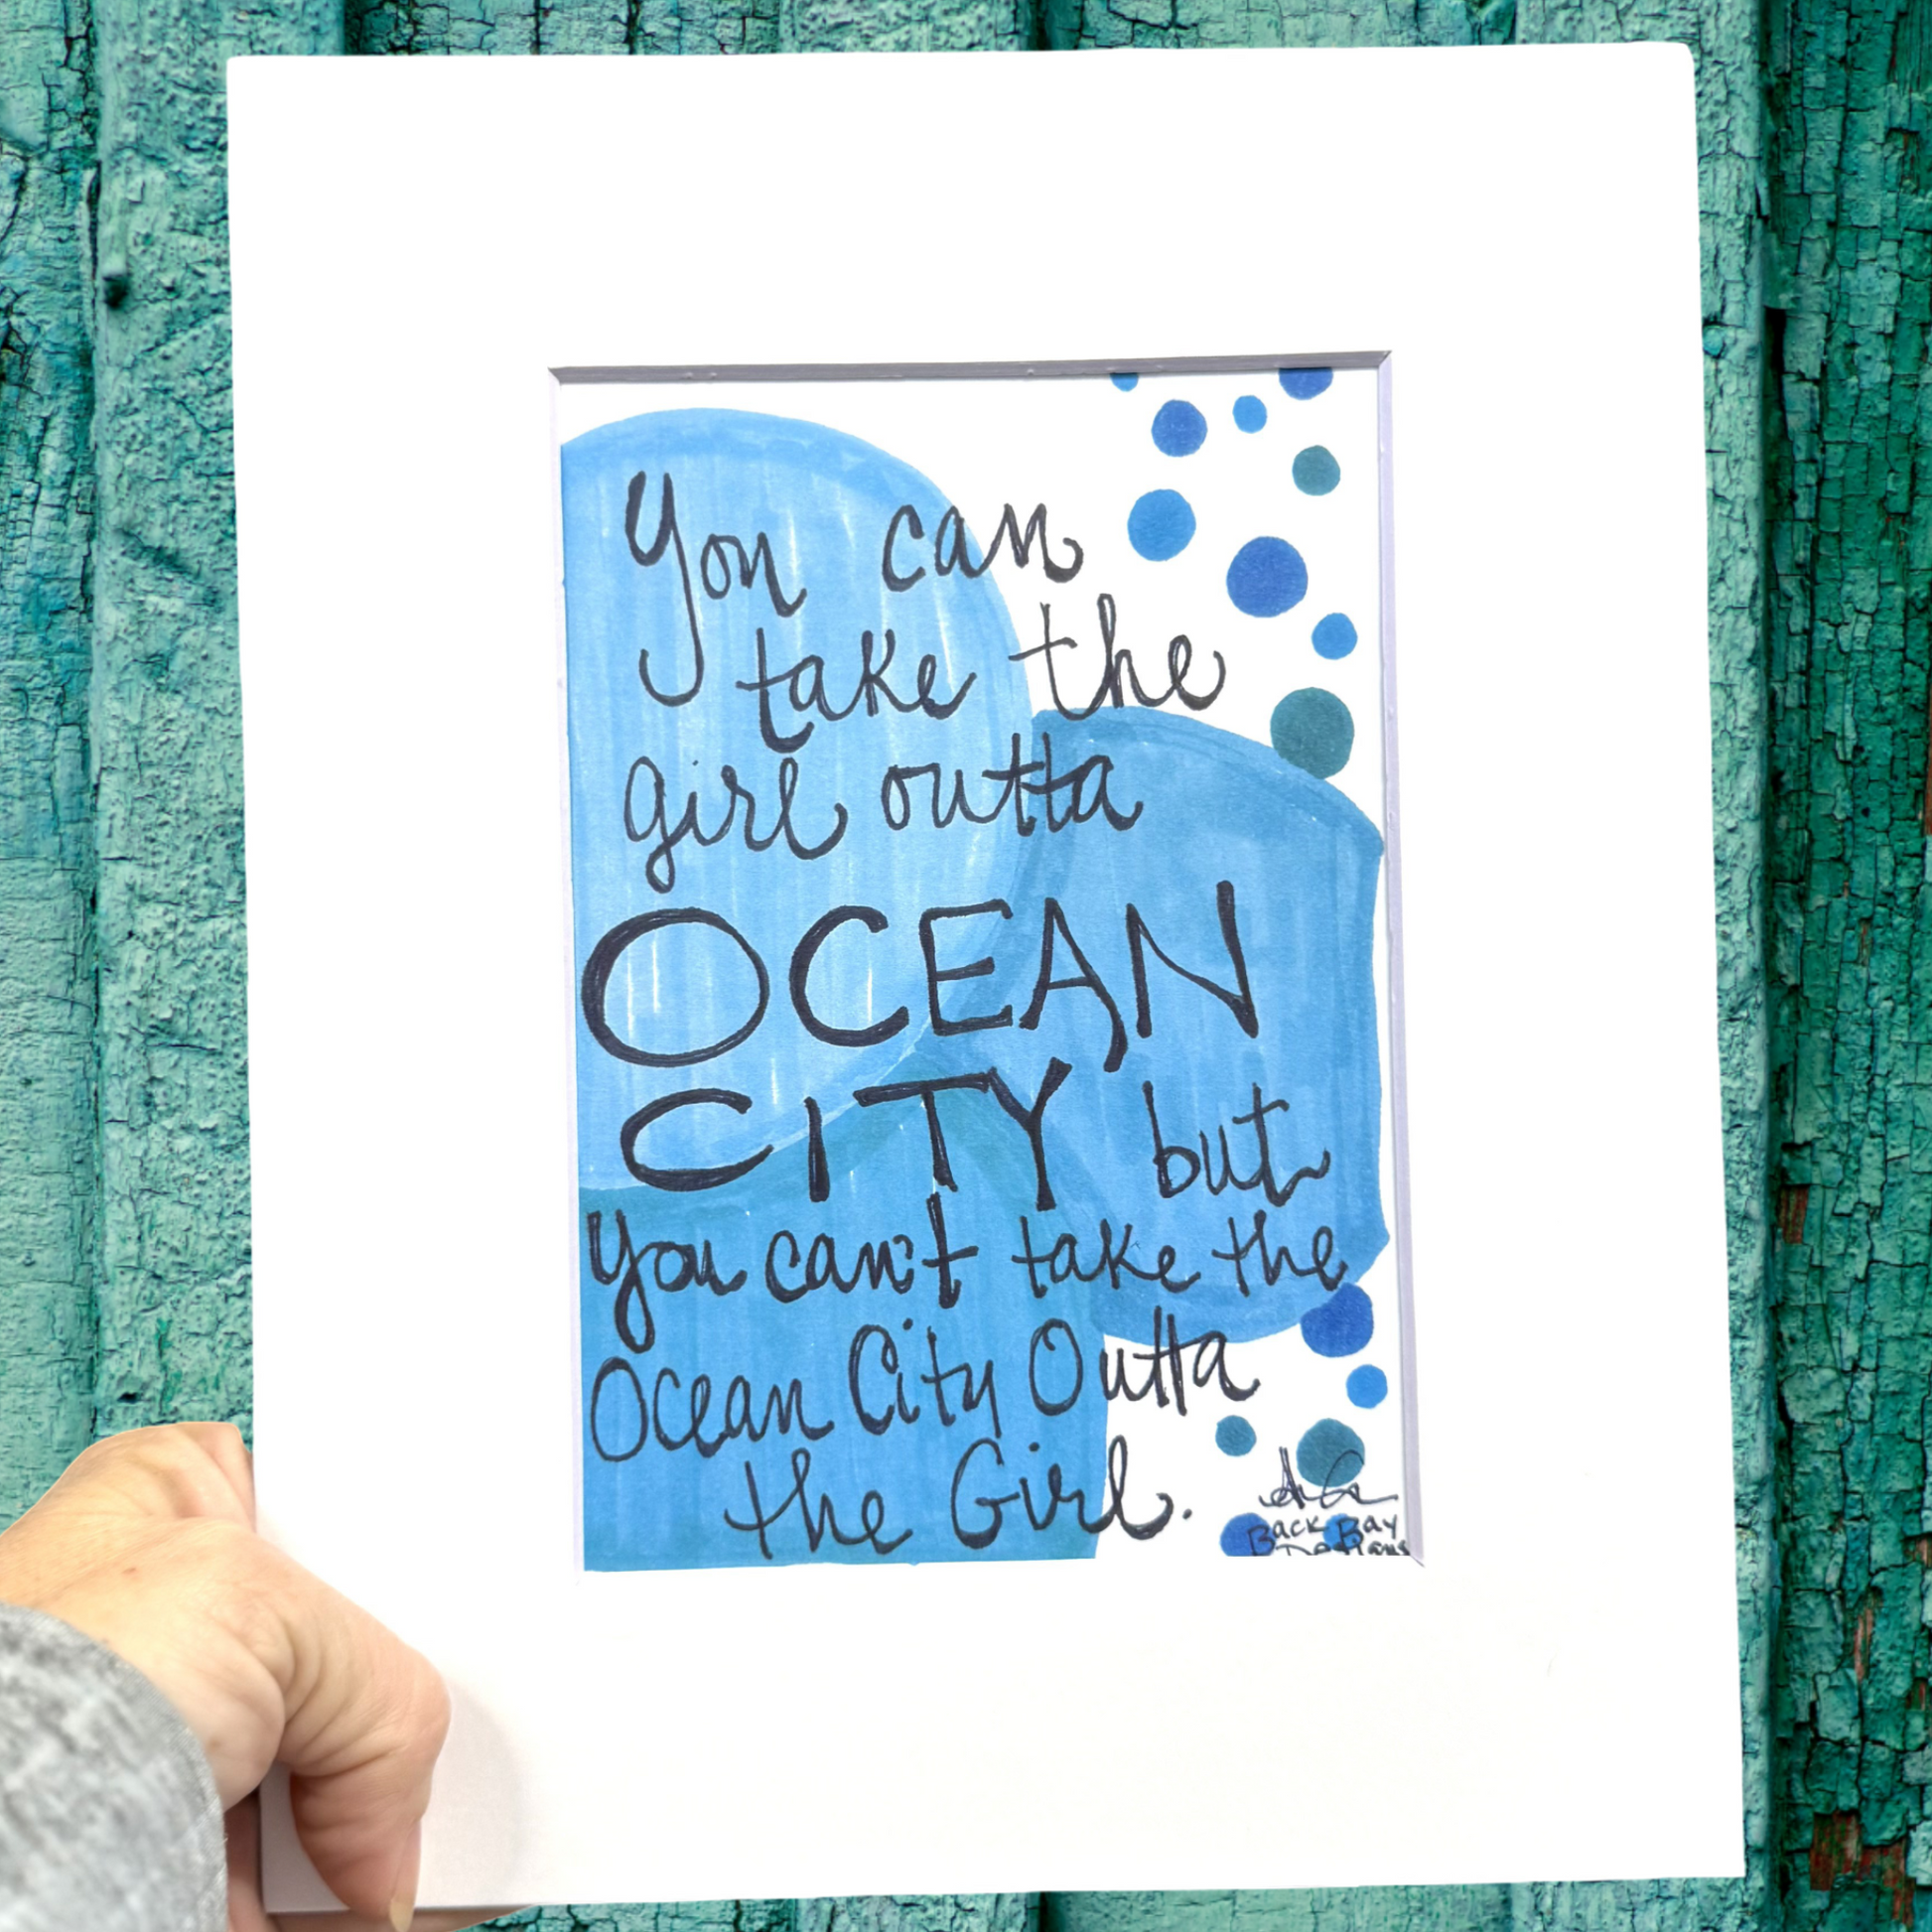 You can
take the
girl outta
OCEAN
CITY but
You can't take the
Ocean City Outta
the Girl.
Back Bay
Designs